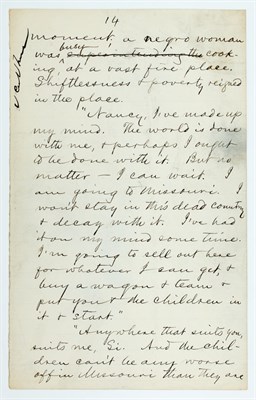 14
moment, a negro woman
was busy superintending the cook-
ing, at a vast fire place.
Shiftlessness & poverty reigned
in the place.
"Nancy, I've made up
my mind. The world is done
with me, & perhaps I ought
to be done with it. But no
matter — I can wait. I
am going to Missouri. I
won't stay in this dead country
& decay with it. I've had
it on my mind some time.
I'm going to sell out here
for whatever I can get, &
buy a wagon & team &
put you & the children in
it & start."
"Anywhere that suits you,
suits me, Si. And the chil-
dren can't be any worse
off in Missouri than they are